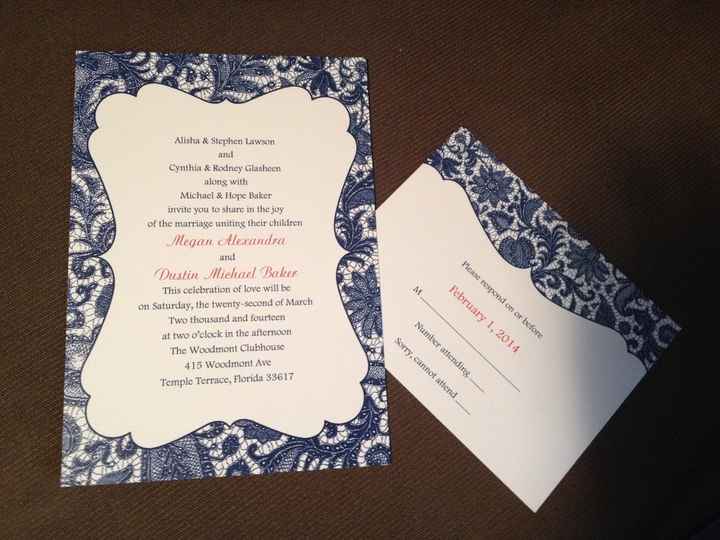 Alisha & Stephen Lawson
and
Cynthia & Rodney Glasheen
along with
Michael & Hope Baker
invite you to share in the joy
of the marriage uniting their children
Megan Alexandra
and
Dustin Michael Baker
This celebration of love will be
on Saturday, the twenty-second of March
Two thousand and fourteen
at two o'clock in the afternoon
The Woodmont Clubhouse
415 Woodmont Ave
Temple Terrace, Florida 33617
Please respond on or before
February 1, 2014
M
Number attending
Sorry, cannot attend